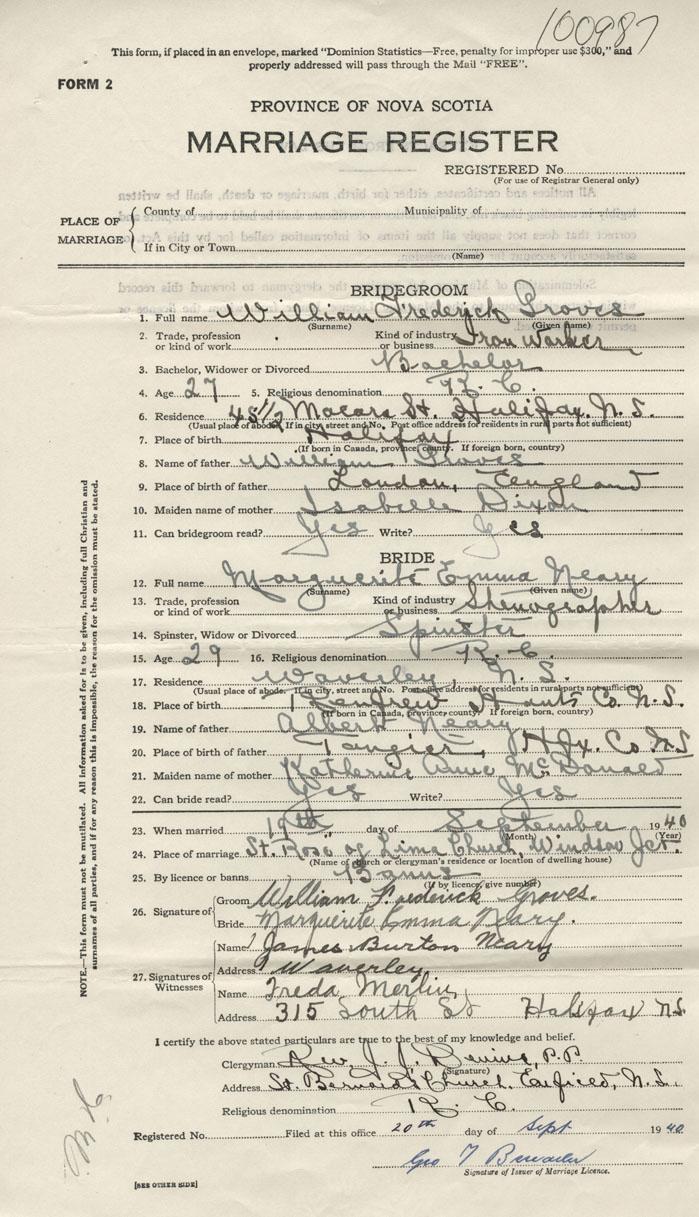 100987
This form, if placed in an envelope, marked "Dominion Statistics—Free, penalty for improper use $300," and
properly addressed will pass through the Mail "FREE".
FORM 2
PROVINCE OF NOVA SCOTIA
MARRIAGE REGISTER
REGISTERED No.
(For use of Registrar General only)
PLACE OF MARRIAGE
County of Municipality of
If in City or Town
(Name)
BRIDEGROOM
1. Full name William Frederick Groves
(Surname) (Given name)
2. Trade, profession or kind of work Kind of industry or business Iron Worker
3. Bachelor, Widower or Divorced Bachelor
4. Age 27 5. Religious denomination R. C.
6. Residence 45 1/2 Macara St. Halifax. N. S.
(Usual place of abode. If in city, street and No. Post office address for residents in rural parts not sufficient)
7. Place of birth Halifax
(If born in Canada, province, county. If foreign born, country)
8. Name of father William Groves
9. Place of birth of father London, England
10. Maiden name of mother Isabelle Dixon
11. Can bridegroom read? Yes Write? Yes
BRIDE
12. Full name Marguerite Emma Neary
(Surname) (Given name)
13. Trade, profession or kind of work Kind of industry or business Stenographer
14. Spinster, Widow or Divorced Spinster
15. Age 29 16. Religious denomination R. C.
17. Residence Waverley, N. S.
(Usual place of abode. If in city, street and No. Post office address for residents in rural parts not sufficient)
18. Place of birth Renfrew Hants Co. N. S.
(If born in Canada, province, county. If foreign born, country)
19. Name of father Albert Neary
20. Place of birth of father Tangier, Hfx. Co. N.S
21. Maiden name of mother Katherine Anne McDonald
22. Can bride read? Yes Write? Yes
23. When married 19th day of September 1940
(Month) (Year)
24. Place of marriage St. Rose of Lima Church, Windsor Jct.
(Name of church or clergyman's residence or location of dwelling house)
25. By licence or banns Banns
(If by licence, give number)
26. Signature of
Groom William Frederick Groves.
Bride Marguerite Emma Neary.
27. Signatures of Witnesses
Name James Burton Neary
Address Waverley
Name Freda Merlin
Address 315 South St Halifax N.S.
I certify the above stated particulars are true to the best of my knowledge and belief.
Clergyman Rev. J. J. P.P.
(Signature)
Address St. Bernard's Church, Enfield, N.S.
Religious denomination R. C.
Registered No. Filed at this office 20th day of Sept 1940
Geo T
Signature of Issuer of Marriage Licence.
[SEE OTHER SIDE]
NOTE.—This form must not be mutilated. All information asked for is to be given, including full Christian and
surnames of all parties, and if for any reason this is impossible, the reason for the omission must be stated.